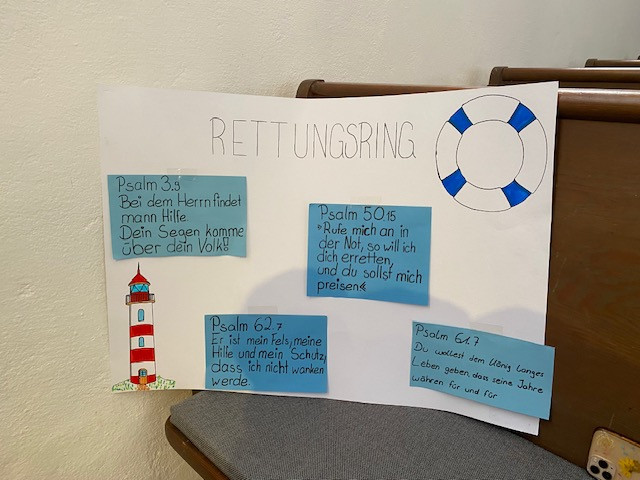 RETTUNGSRING
Psalm 3.9
Bei dem Herrn findet
mann Hilfe.
Dein Segen komme
über dein Volk!
Psalm 50.15
»Rufe mich an in
der Not, so will ich
dich erretten,
und du sollst mich
preisen«
Psalm 62.7
Er ist mein Fels, meine
Hilfe und mein Schutz,
dass ich nicht wanken
werde.
Psalm 61.7
Du wollest dem König langes
Leben geben, dass seine Jahre
währen für und für